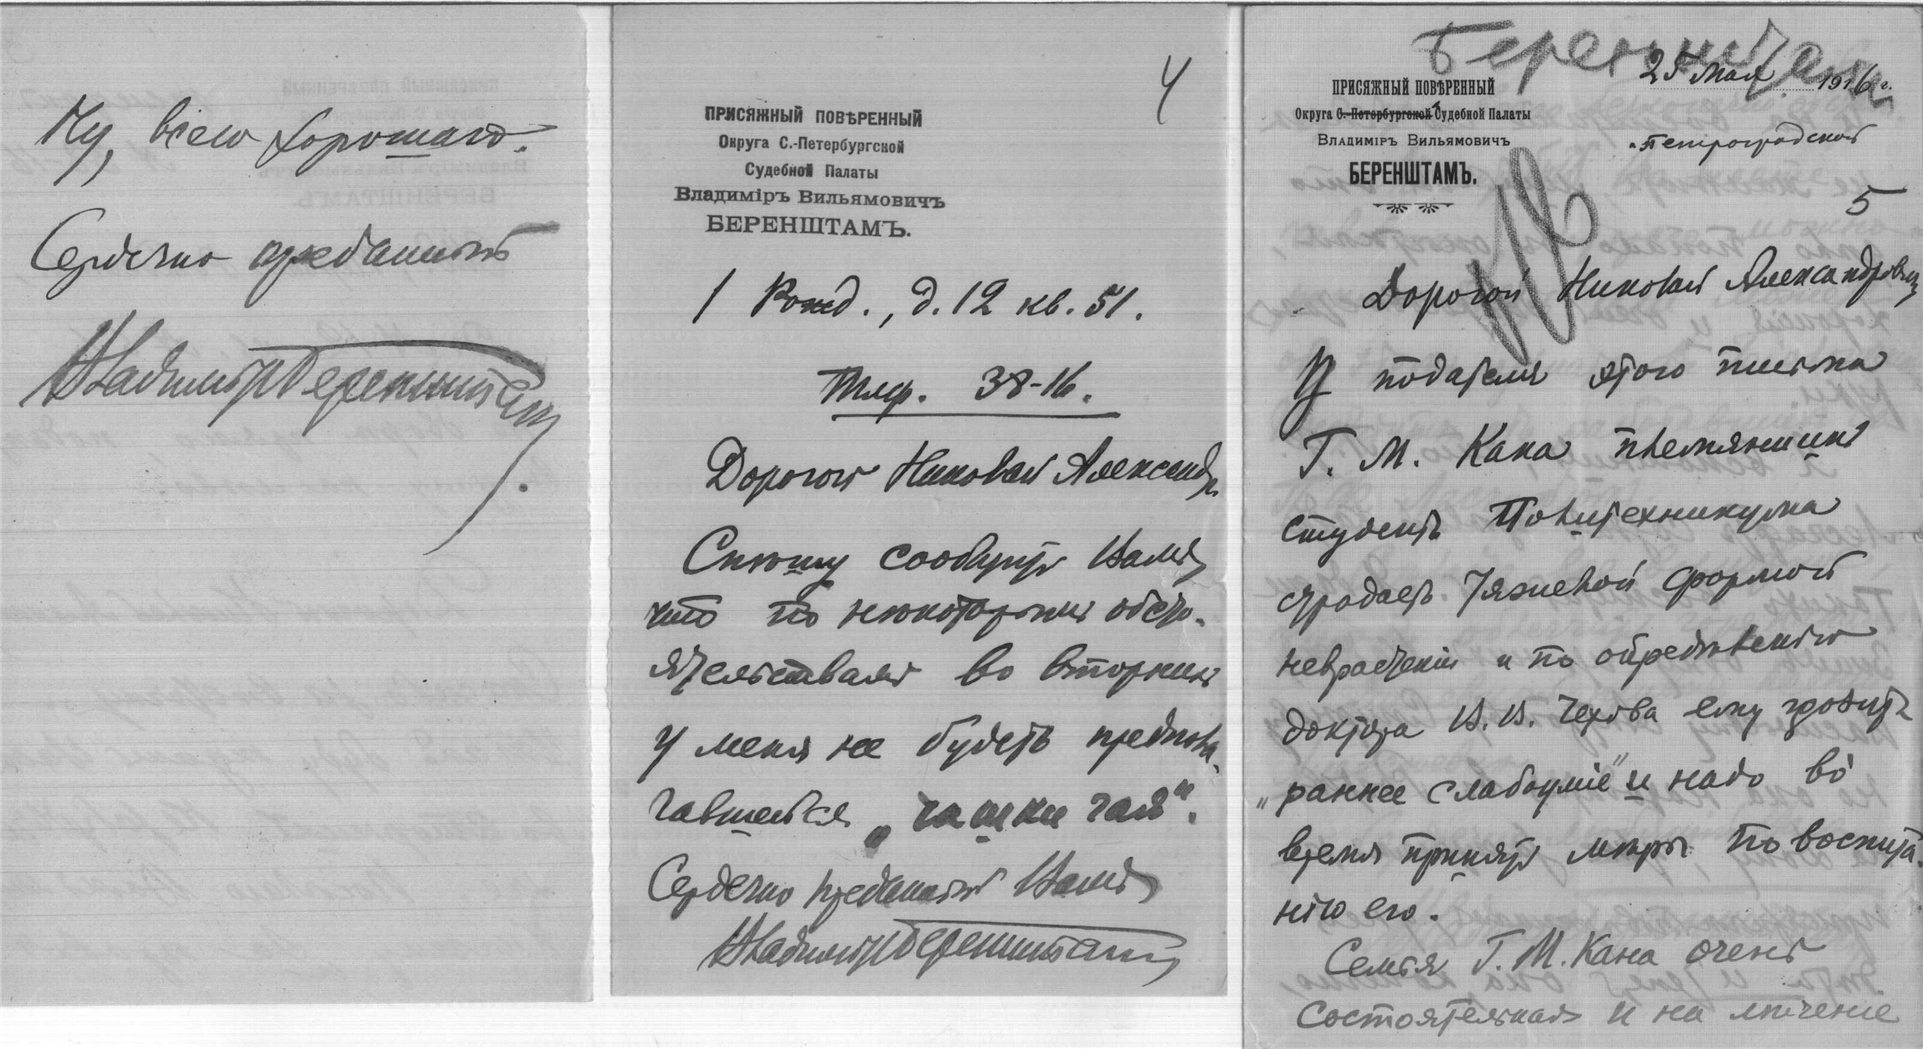 Ну, всего хорошаго.
Сердечно преданный
Владимир Беренштам
4
ПРИСЯЖНЫЙ ПОВѢРЕННЫЙ
Округа С.-Петербургской
Судебной Палаты
Владиміръ Вильямовичъ
БЕРЕНШТАМЪ.
1 Рожд., д. 12 кв. 51.
Тлф. 38-16.
Дорогой Николай Александр.
Спѣшу сообщить Вамъ,
что по нѣкоторымъ обсто-
ятельствамъ во вторникъ
у меня не будетъ предпола-
гавшейся „чашки чая".
Сердечно преданный Вамъ
Владимир Беренштам
Беренштам
25 мая 1916 г.
ПРИСЯЖНЫЙ ПОВѢРЕННЫЙ
Округа С.-Петербургской Судебной Палаты
Владиміръ Вильямовичъ
Петроградской
БЕРЕНШТАМЪ.
5
Дорогой Николай Александровичъ
У подателя этого письма
Г. М. Кана племянникъ
студентъ Политехникума
страдаетъ тяжелой формой
неврастеніи и по опредѣленію
доктора В. В. Чехова ему грозитъ
„раннее слабоуміе" и надо во
время принять мѣры по воспита-
нію его.
Семья Г. М. Кана очень
состоятельная и на лѣченіе